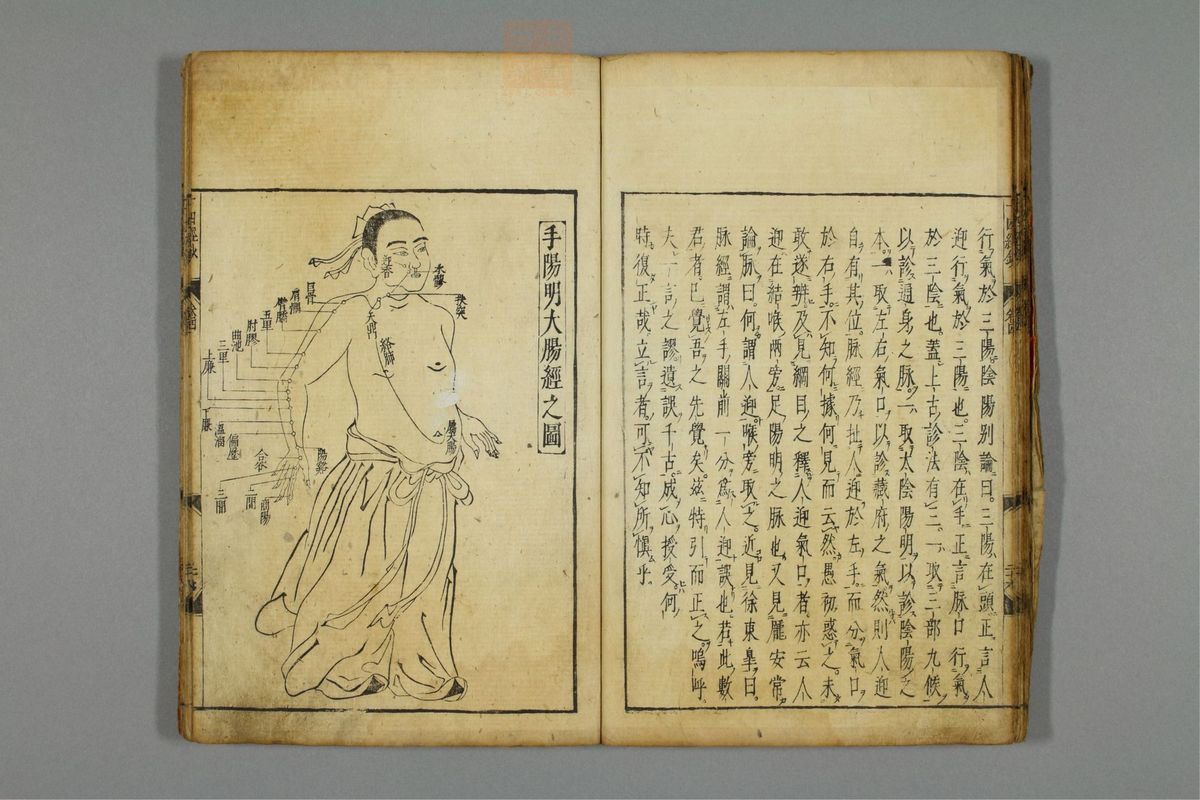 行氣於三陽陰陽別論曰三陽在頭正言人
迎行氣於三陽也三陰在手正言脉口行氣
於三陰也蓋上古診法有三一取三部九候
以診通身之脉一取太陰陽明以診陰陽之
本一取左右氣口以診藏府之氣然則人迎
自有其位脉經乃扯人迎於左手而分氣口
於右手不知何據何見而云然愚初惑之未
敢遂辨及見綱目之釋人迎氣口者亦云人
迎在結喉兩旁足陽明之脉也又見龐安常
論脉曰何謂人迎喉旁取之近見徐東皐曰
脉經謂左手關前一分爲人迎誤也若此數
君者已覺吾之先覺矣茲特引而正之嗚呼
夫一言之謬遺誤千古成心授受何
時復正哉立言者可不知所愼乎
手陽明大腸經之圖
禾髎
扶突
天鼎
巨骨
肩髃
臂臑
五里
肘髎
曲池
三里
上廉
下廉
溫溜
偏歷
陽谿
合谷
三間
二間
商陽
絡肺
屬大腸